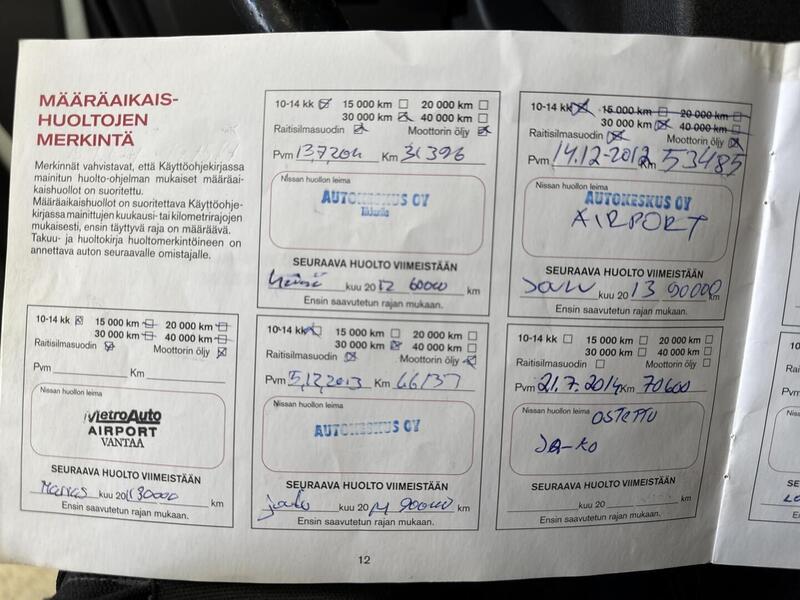 MÄÄRÄAIKAIS-
HUOLTOJEN
MERKINTÄ
Merkinnät vahvistavat, että Käyttöohjekirjassa
mainitun huolto-ohjelman mukaiset määräai-
kaishuollot on suoritettu.
Määräaikaishuollot on suoritettava Käyttöohje-
kirjassa mainittujen kuukausi- tai kilometrirajojen
mukaisesti, ensin täyttyvä raja on määräävä.
Takuu- ja huoltokirja huoltomerkintöineen on
annettava auton seuraavalle omistajalle.
10-14 kk 15 000 km 20 000 km
30 000 km 40 000 km
Raitisilmasuodin Moottorin öljy
Pvm Km
Nissan huollon leima
MetroAuto
AIRPORT
VANTAA
SEURAAVA HUOLTO VIIMEISTÄÄN
Marras kuu 2011 30000 km
Ensin saavutetun rajan mukaan.
10-14 kk 15 000 km 20 000 km
30 000 km 40 000 km
Raitisilmasuodin Moottorin öljy
Pvm Km 31396
Nissan huollon leima
AUTOKESKUS OY
Tikkurila
SEURAAVA HUOLTO VIIMEISTÄÄN
kuu 2012 60000 km
Ensin saavutetun rajan mukaan.
10-14 kk 15 000 km 20 000 km
30 000 km 40 000 km
Raitisilmasuodin Moottorin öljy
Pvm 5.12.2013 Km 66137
Nissan huollon leima
AUTOKESKUS OY
SEURAAVA HUOLTO VIIMEISTÄÄN
joulu kuu 2014 90000 km
Ensin saavutetun rajan mukaan.
10-14 kk 15 000 km 20 000 km
30 000 km 40 000 km
Raitisilmasuodin Moottorin öljy
Pvm 14.12-2012 Km 53485
Nissan huollon leima
AUTOKESKUS OY
AIRPORT
SEURAAVA HUOLTO VIIMEISTÄÄN
Joulu kuu 2013 90000 km
Ensin saavutetun rajan mukaan.
10-14 kk 15 000 km 20 000 km
30 000 km 40 000 km
Raitisilmasuodin Moottorin öljy
Pvm 21.7.2014 Km 70600
Nissan huollon leima OSTETTU
JA-KO
SEURAAVA HUOLTO VIIMEISTÄÄN
kuu 20 km
Ensin saavutetun rajan mukaan.
12